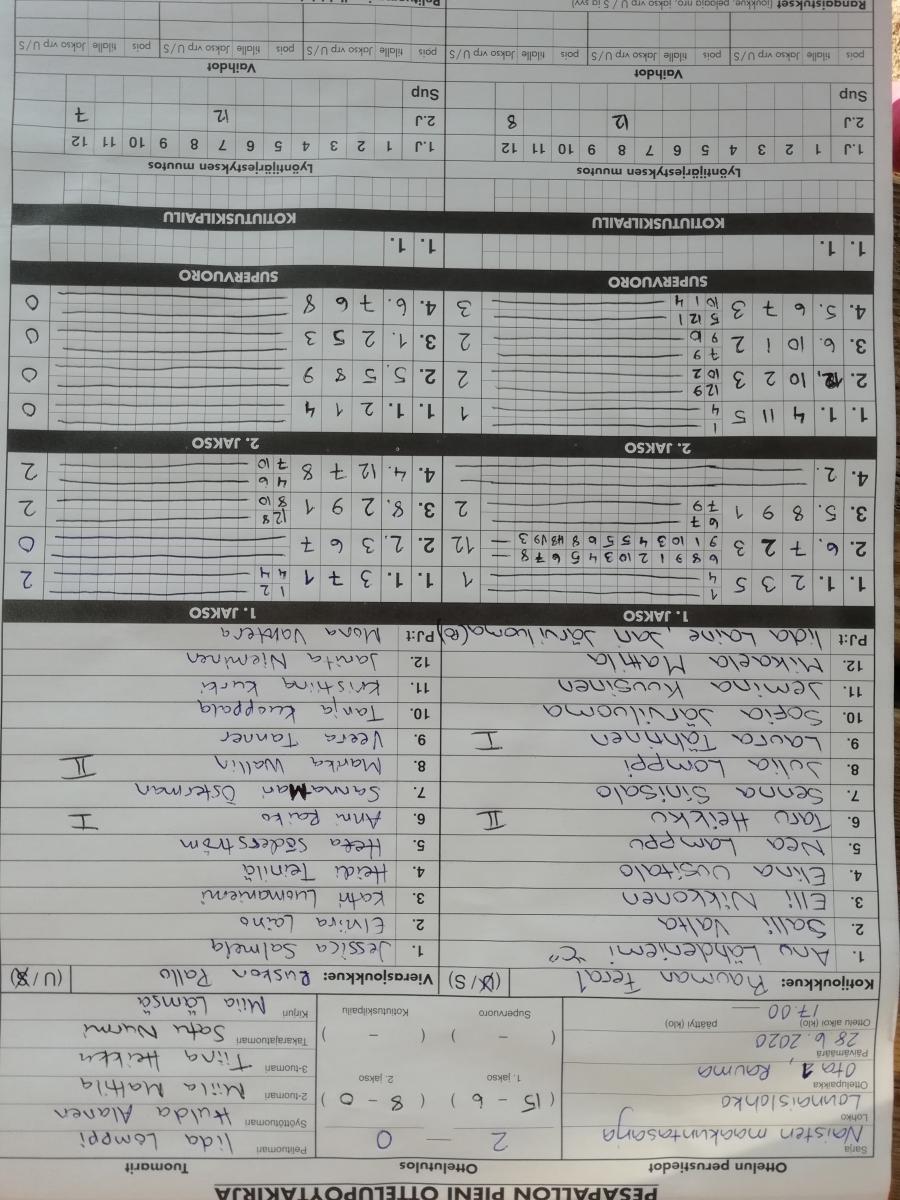 PESÄPALLON PIENI OTTELUPÖYTÄKIRJA
Ottelun perustiedot
Ottelutulos
Tuomarit
Sarja
Naisten maakuntasarja
Lohko
Lounaislohko
Ottelupaikka
Ota 1, Rauma
Päivämäärä
28.6.2020
Ottelu alkoi (klo) päättyi (klo)
17.00
2 — 0
( 15 - 6 ) ( 8 - 0 )
1. jakso 2. jakso
( - ) ( - )
Supervuoro Kotiutuskilpailu
Pelituomari Iida Lamppi
Syöttötuomari Hulda Alanen
2-tuomari Miila Mattila
3-tuomari Tiina Heikku
Takarajatuomari Satu Nurmi
Kirjuri Miia Lämsä
Kotijoukkue: Rauman Fera1 (U/S)
1. Anu Lähdeniemi "C"
2. Salli Valta
3. Elli Nikkonen
4. Elina Uusitalo
5. Nea Lamppu
6. Taru Heikku II
7. Senna Sinisalo
8. Julia Lamppi
9. Laura Tähtinen I
10. Sofia Järviluoma
11. Jemina Kuusinen
12. Mikaela Mattila
PJ:t Iida Laine, Jan Järviluoma(e)
1. JAKSO
1. 1. 2 3 5 1 4 1
2. 6. 7 2 3 12
3. 5. 8 9 1 6 7 7 9 2
4. 2.
2. JAKSO
1. 1. 4 11 5 1 4 1
2. 12. 10 2 3 12 9 10 2 2
3. 6. 10 1 2 7 9 9 10 2
4. 5. 6 7 3 5 12 1 10 1 4 3
SUPERVUORO
1. 1.
KOTIUTUSKILPAILU
Lyöntijärjestyksen muutos
1.J 1 2 3 4 5 6 7 8 9 10 11 12
2.J 12 8
Sup
Vaihdot
pois tilalle Jakso vrp U/S pois tilalle Jakso vrp U/S pois tilalle Jakso vrp U/S
Rangaistukset (joukkue, pelaaja nro, jakso vrp U / S ja syy)
Vierasjoukkue: Ruskon Pallo (U/S)
1. Jessica Salmela
2. Elviira Laino
3. Katri Luomaniemi
4. Heidi Teinilä
5. Heta Söderström
6. Anni Raiko I
7. SannaMari Österman
8. Marika Wallin II
9. Veera Tanner
10. Tanja Kuoppala
11. Kristiina Kurki
12. Janita Nieminen
PJ:t Mona Valtera
1. JAKSO
1. 1. 3 7 1 1 2 4 4 2
2. 2. 3 6 7 0
3. 8. 2 9 1 12 8 8 10 2
4. 4. 12 7 8 4 6 7 10 2
2. JAKSO
1. 1. 2 1 4 0
2. 5. 5 8 9 0
3. 1. 2 5 3 0
4. 6. 7 6 8 0
SUPERVUORO
1. 1.
KOTIUTUSKILPAILU
Lyöntijärjestyksen muutos
1.J 1 2 3 4 5 6 7 8 9 10 11 12
2.J 12 7
Sup
Vaihdot
pois tilalle Jakso vrp U/S pois tilalle Jakso vrp U/S pois tilalle Jakso vrp U/S